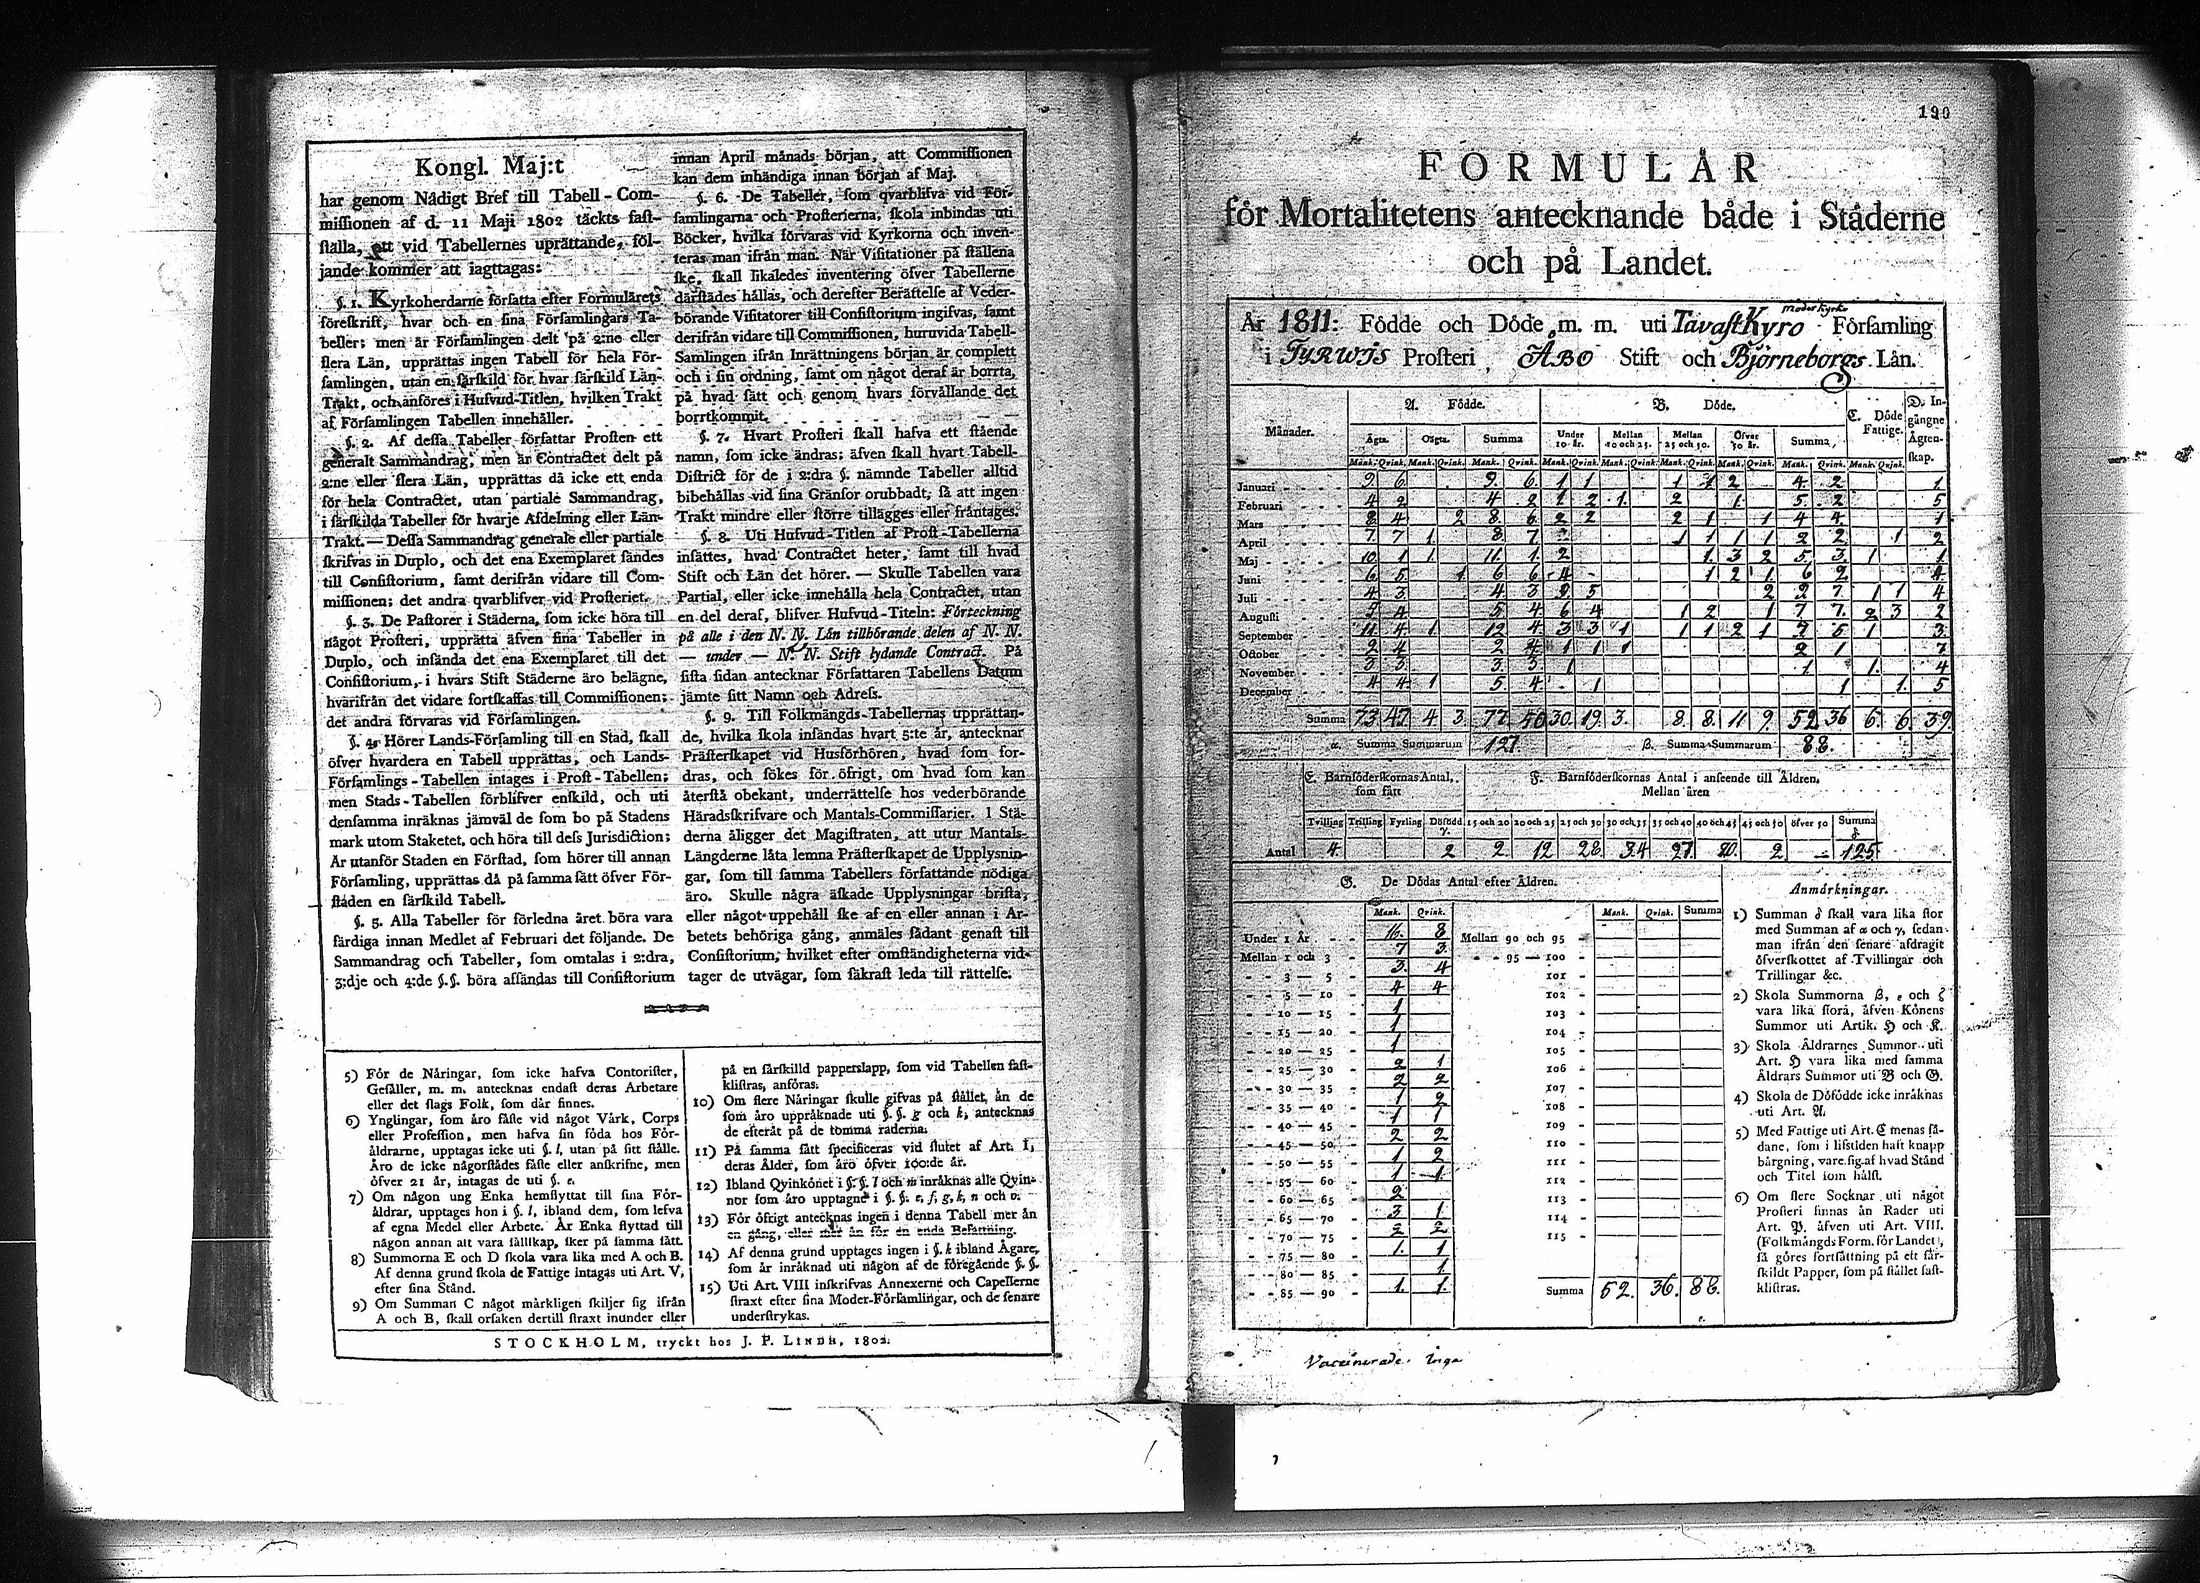 Kongl. Maj:t
har genom Nådigt Bref till Tabell-Com-
missionen af d. 11 Maji 1802 täckts fast-
ställa, att vid Tabellernes uprättande, föl-
jande kommer att iagttagas:
§. 1. Kyrkoherdarne författa efter Formulärets
föreskrift, hvar och en sina Församlingars Ta-
beller; men är Församlingen delt på 2:ne eller
flera Län, upprättas ingen Tabell för hela För-
samlingen, utan en särskild för hvar särskild Län-
Trakt, och anföres i Hufvud-Titlen, hvilken Trakt
af Församlingen Tabellen innehåller.
§. 2. Af dessa Tabeller författar Prosten ett
generalt Sammandrag; men är Contractet delt på
2:ne eller flera Län, upprättas då icke ett enda
för hela Contractet, utan partiale Sammandrag,
i särskilda Tabeller för hvarje Afdelning eller Län-
Trakt. — Dessa Sammandrag generale eller partiale
skrifvas in Duplo, och det ena Exemplaret sändes
till Consistorium, samt derifrån vidare till Com-
missionen; det andra qvarblifver vid Prosteriet.
§. 3. De Pastorer i Städerna, som icke höra till
något Prosteri, upprätta äfven sina Tabeller in
Duplo, och insända det ena Exemplaret till det
Consistorium, i hvars Stift Städerne äro belägne,
hvarifrån det vidare fortskaffas till Commissionen;
det andra förvaras vid Församlingen.
§. 4. Hörer Lands-Församling till en Stad, skall
öfver hvardera en Tabell upprättas, och Lands-
Församlings-Tabellen intages i Prost-Tabellen;
men Stads-Tabellen förblifver enskild, och uti
densamma inräknas jämväl de som bo på Stadens
mark utom Staketet, och höra till dess Jurisdiction;
Är utanför Staden en Förstad, som hörer till annan
Församling, upprättas då på samma sätt öfver För-
staden en särskild Tabell.
§. 5. Alla Tabeller för förledna året böra vara
färdiga innan Medlet af Februari det följande. De
Sammandrag och Tabeller, som omtalas i 2:dra,
3:dje och 4:de §.§. böra afsändas till Consistorium
innan April månads början, att Commissionen
kan dem inhändiga innan början af Maj.
§. 6. De Tabeller, som qvarblifva vid För-
samlingarna och Prosterierna, skola inbindas uti
Böcker, hvilka förvaras vid Kyrkorna och inven-
teras man ifrån man. När Visitationer på ställena
ske, skall likaledes inventering öfver Tabellerne
därstädes hållas, och derefter Berättelse af Veder-
börande Visitatorer till Consistorium ingifvas, samt
derifrån vidare till Commissionen, huruvida Tabell-
Samlingen ifrån Inrättningens början är complett
och i sin ordning, samt om något deraf är borrta,
på hvad sätt och genom hvars förvållande det
borrtkommit.
§. 7. Hvart Prosteri skall hafva ett stående
namn, som icke ändras; äfven skall hvart Tabell-
District för de i 2:dra §. nämnde Tabeller alltid
bibehållas vid sina Gränsor orubbadt, så att ingen
Trakt mindre eller större tillägges eller fråntages.
§. 8. Uti Hufvud-Titlen af Prost-Tabellerna
insättes, hvad Contractet heter, samt till hvad
Stift och Län det hörer. — Skulle Tabellen vara
Partial, eller icke innehålla hela Contractet, utan
en del deraf, blifver Hufvud-Titeln: Förteckning
på alle i den N. N. Län tillhörande delen af N. N.
— under — N. N. Stift lydande Contract. På
sista sidan antecknar Författaren Tabellens Datum
jämte sitt Namn och Adress.
§. 9. Till Folkmängds-Tabellernas upprättan-
de, hvilka skola insändas hvart 5:te år, antecknar
Prästerskapet vid Husförhören, hvad som for-
dras, och sökes för öfrigt, om hvad som kan
återstå obekant, underrättelse hos vederbörande
Häradsskrifvare och Mantals-Commissarier. I Stä-
derna åligger det Magistraten, att utur Mantals-
Längderne låta lemna Prästerskapet de Upplysnin-
gar, som till samma Tabellers författande nödiga
äro. Skulle några äskade Upplysningar brista,
eller något uppehåll ske af en eller annan i Ar-
betets behöriga gång, anmäles sådant genast till
Consistorium, hvilket efter omständigheterna vid-
tager de utvägar, som säkrast leda till rättelse.
5) För de Näringar, som icke hafva Contorister,
Gesäller, m. m. antecknas endast deras Arbetare
eller det slags Folk, som där finnes.
6) Ynglingar, som äro fäste vid något Värk, Corps
eller Profession, men hafva sin föda hos För-
äldrarne, upptagas icke uti §. l, utan på sitt ställe.
Äro de icke någorstädes fäste eller anskrifne, men
öfver 21 år, intagas de uti §. e.
7) Om någon ung Enka hemflyttat till sina För-
äldrar, upptages hon i §. l, ibland dem, som lefva
af egna Medel eller Arbete. Är Enka flyttad till
någon annan att vara sällskap, sker på samma sätt.
8) Summorna E och D skola vara lika med A och B.
Af denna grund skola de Fattige intagas uti Art. V,
efter sina Stånd.
9) Om Summan C något märkligen skiljer sig ifrån
A och B, skall orsaken dertill straxt inunder eller
på en särskilld papperslapp, som vid Tabellen fast-
klistras, anföras.
10) Om flere Näringar skulle gifvas på stället, än de
som äro uppräknade uti §. §. g och k, antecknas
de efteråt på de tomma raderna.
11) På samma sätt specificeras vid slutet af Art. I,
deras Ålder, som äro öfver 100:de år.
12) Ibland Qvinkönet i §. §. l och m inräknas alle Qvin-
nor som äro upptagne i §. §. e, f, g, k, n och o.
13) För öfrigt antecknas ingen i denna Tabell mer än
en gång, eller mer än för en enda Befattning.
14) Af denna grund upptages ingen i §. k ibland Ägare,
som är inräknad uti någon af de föregående §. §.
15) Uti Art. VIII inskrifvas Annexerne och Capellerne
straxt efter sina Moder-Församlingar, och de senare
understrykas.
STOCKHOLM, tryckt hos J. P. LINDH, 1802.
190
FORMULÄR
för Mortalitetens antecknande både i Städerne
och på Landet.
moderkyrko
År 1811: Födde och Döde m. m. uti TavastKyro Församling
i TYRWIS Prosteri, ÅBO Stift och Björneborgs Län.
Månader. A. Födde. B. Döde. C. Döde Fattige. D. In-gångne Ägten-skap.
Ägta. Oägta. Summa Under 10 år. Mellan 10 och 25. Mellan 25 och 50. Öfver 50 år. Summa,
Mank. Qvink. Mank. Qvink. Mank. Qvink. Mank. Qvink. Mank. Qvink. Mank. Qvink. Mank. Qvink. Mank. Qvink. Mank. Qvink.
Januari 9 6 9. 6. 1 1 1 1 2 4. 2 1.
Februari 4 2 4 2 1 2 1. 2 1. 5. 2 5
Mars 8 4 2 8 6 2 2 2 1 1 4 4 1
April 7 7 1 8 7 1 1 1 1 2 2 1 2
Maj 10 1 1 11 1. 2 1. 3 2 5 3 1 1
Juni 6 5 1 6 6 4 1 2 1. 6 2 4
Juli 4 3 4 3 2 5 2 2 7 1 1 4
Augusti 5 4 5 4 6 4 1 2 1 7 7. 2 3 2
September 11 4 1. 12 4 3 3 1 1 1 2 1 9 5 1 3.
October 2 4 2 4 1 1 1 2 1 7
November 3 3 3 3 1 1. 1. 4
December 4 4 1 5. 4. 1 1 1. 5
Summa 73 47 4 3. 77. 50 30. 19. 3. 8. 8. 11 9. 52 36 6. 6. 39.
α. Summa Summarum 127 β. Summa Summarum 88.
E. Barnföderskornas Antal, som fått
F. Barnföderskornas Antal i anseende till Åldren.
Mellan åren
Tvilling Trilling Fyrling Dödfödd γ. 15 och 20 20 och 25 25 och 30 30 och 35 35 och 40 40 och 45 45 och 50 öfver 50 Summa δ
Antal 4. 2 2. 12 28. 34 27. 20. 2 125.
G. De Dödas Antal efter Åldren.
Mank. Qvink. Mank. Qvink. Summa
Under 1 År 16. 8 Mellan 90 och 95
Mellan 1 och 3 7 3. 95 — 100
3 — 5 3. 4 101
5 — 10 4 4 102
10 — 15 1 103
15 — 20 1 104
20 — 25 1 105
25 — 30 2 1 106
30 — 35 2 2 107
35 — 40 1 2 108
40 — 45 1 1 109
45 — 50 2 2 110
50 — 55 1 2 111
55 — 60 1 1 112
60 — 65 2 113
65 — 70 3 1 114
70 — 75 2 2 115
75 — 80 1. 1
80 — 85 1.
85 — 90 1. 1. Summa 52. 36. 88.
ε.
Anmärkningar.
1) Summan δ skall vara lika stor
med Summan af α och γ, sedan
man ifrån den senare afdragit
öfverskottet af Tvillingar och
Trillingar &c.
2) Skola Summorna β, ε och ζ
vara lika stora, äfven Könens
Summor uti Artik. H och K.
3) Skola Åldrarnes Summor uti
Art. H vara lika med samma
Åldrars Summor uti B och G.
4) Skola de Döfödde icke inräknas
uti Art. A.
5) Med Fattige uti Art. C menas så-
dane, som i lifstiden haft knapp
bärgning, vare sig af hvad Stånd
och Titel som hälst.
6) Om flere Socknar uti något
Prosteri finnas än Rader uti
Art. P. äfven uti Art. VIII.
(Folkmängds Form. för Landet),
så göres fortsättning på ett sär-
skildt Papper, som på stället fast-
klistras.
Vaccinerade. Inga